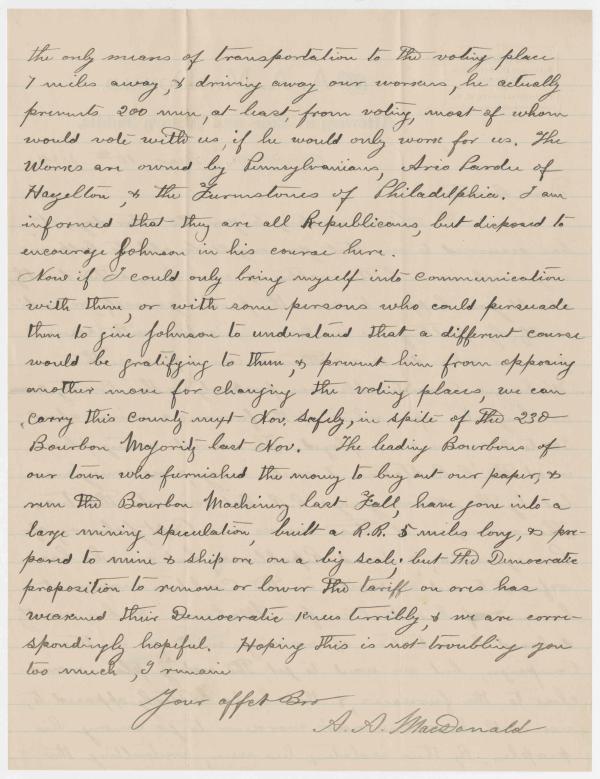 the only means of transportation to the voting place
7 miles away, & driving away our workers, he actually
prevents 200 men, at least, from voting, most of whom
would vote with us, if he would only work for us. The
Works are owned by Pennsylvanians, Ario Pardee of
Hazelton, & the Furmstones of Philadelphia. I am
informed that they are all Republicans, but disposed to
encourage Johnson in his course here.
Now if I could only bring myself into communication
with them, or with some persons who could persuade
them to give Johnson to understand that a different course
would be gratifying to them, & prevent him from opposing
another move for changing the voting places, we can
carry this county next Nov. safely, in spite of the 230
Bourbon Majority last Nov. The leading Bourbons of
our town who furnished the money to buy out our paper, &
run the Bourbon Machinery last Fall, have gone into a
large mining speculation, built a R.R. 5 miles long, & pre-
pared to mine & ship ore on a big scale; but the Democratic
proposition to remove or lower the tariff on ores has
weakened their Democratic knees terribly, & we are corre-
spondingly hopeful. Hoping this is not troubling you
too much, I remain
Your affct Bro
A. A. MacDonald